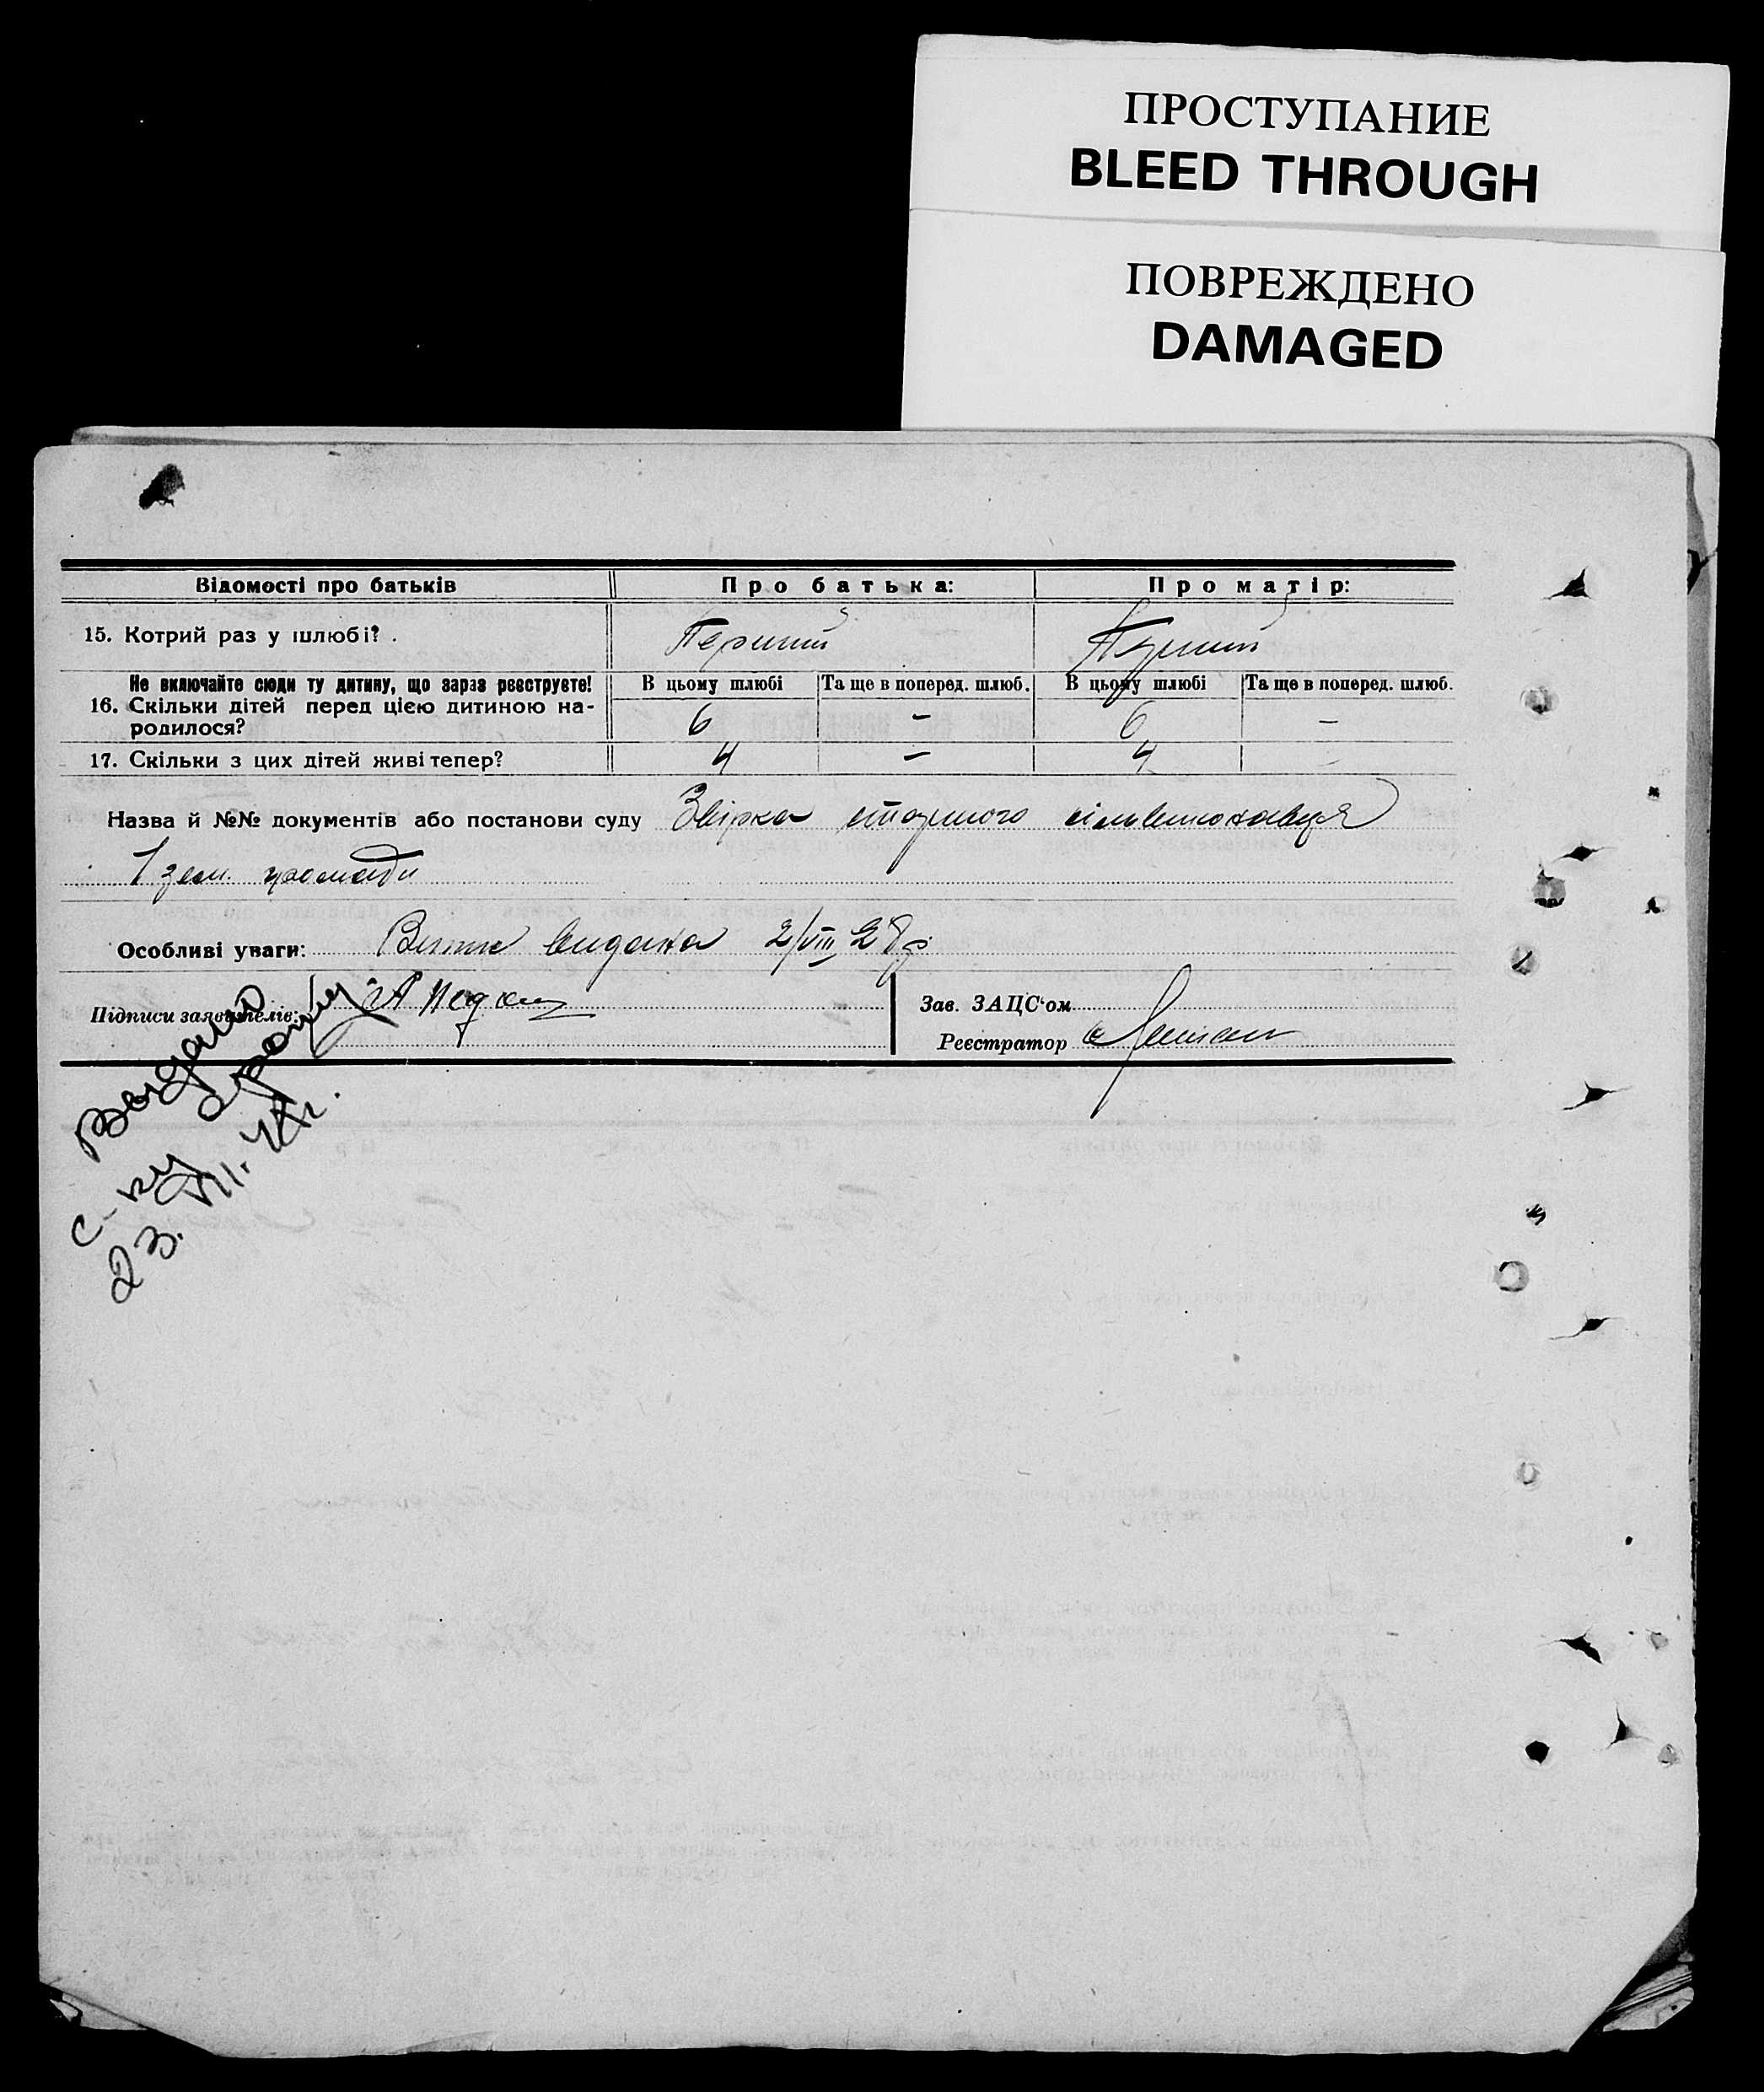 ПРОСТУПАНИЕ
BLEED THROUGH
ПОВРЕЖДЕНО
DAMAGED
Відомості про батьків Про батька: Про матір:
15. Котрий раз у шлюбі? . Перший Перший
Не включайте сюди ту дитину, що зараз реєструєте! В цьому шлюбі Та ще в поперед. шлюб. В цьому шлюбі Та ще в поперед. шлюб.
16. Скільки дітей перед цією дитиною на-
родилося? 6 – 6 –
17. Скільки з цих дітей живі тепер? 4 – 4
Назва й №№ документів або постанови суду Звірка старшого сільвиконавця
1 зем. громади
Особливі уваги: Витяг видано 2/VIII 28 р.
Підписи заявителів:
Зав. ЗАЦС'ом
Реєстратор
Выдано
с-ву
23.